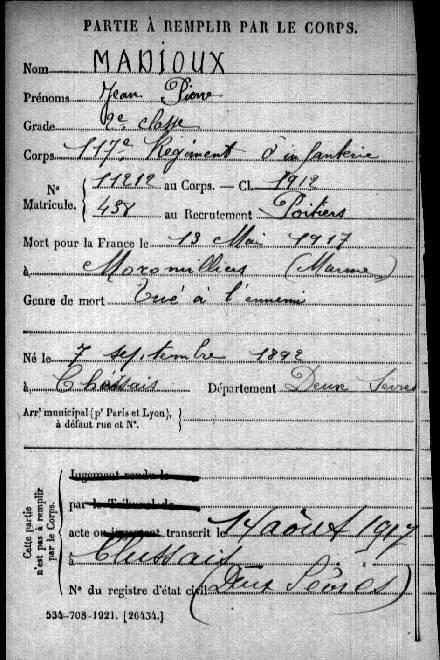 PARTIE À REMPLIR PAR LE CORPS.
Nom MADIOUX
Prénoms Jean Pierre
Grade 2e classe
Corps 117e Régiment d'infanterie
Nº 11212 au Corps. — Cl. 1912
Matricule. 438 au Recrutement Poitiers
Mort pour la France le 13 Mai 1917
à Moronvilliers (Marne)
Genre de mort Tué à l'ennemi
Né le 7 septembre 1892
à Chassais Département Deux Sèvres
Arrt municipal (pr Paris et Lyon),
à défaut rue et Nº.
Cette partie
n'est pas à remplir
par le Corps.
Jugement rendu le
par le Tribunal de
acte ou jugement transcrit le 14 août 1917
à Clussais
(Deux Sèvres)
Nº du registre d'état civil
534-708-1921. [26434.]